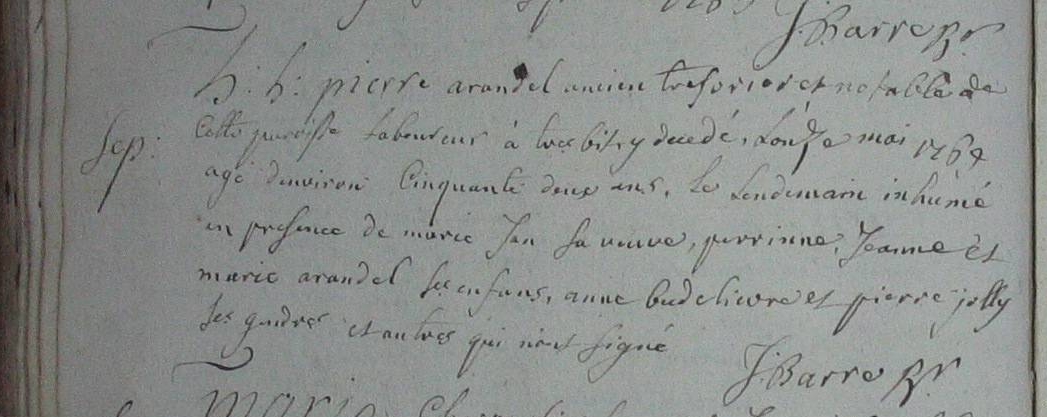 J. Barre Rr
h: h: pierre arondel ancien tresorier et notable de
Sep: Cette paroisse laboureur à decedé Lonze mai 1769
agé denviron Cinquante deux ans, Le Lendemain inhumé
en presence de marie Jan sa veuve, perrinne, Jeanne et
marie arondel ses enfans, anne budelievre et pierre jolly
ses gendres et autres qui n'ont signé
J. Barre Rr
Marie